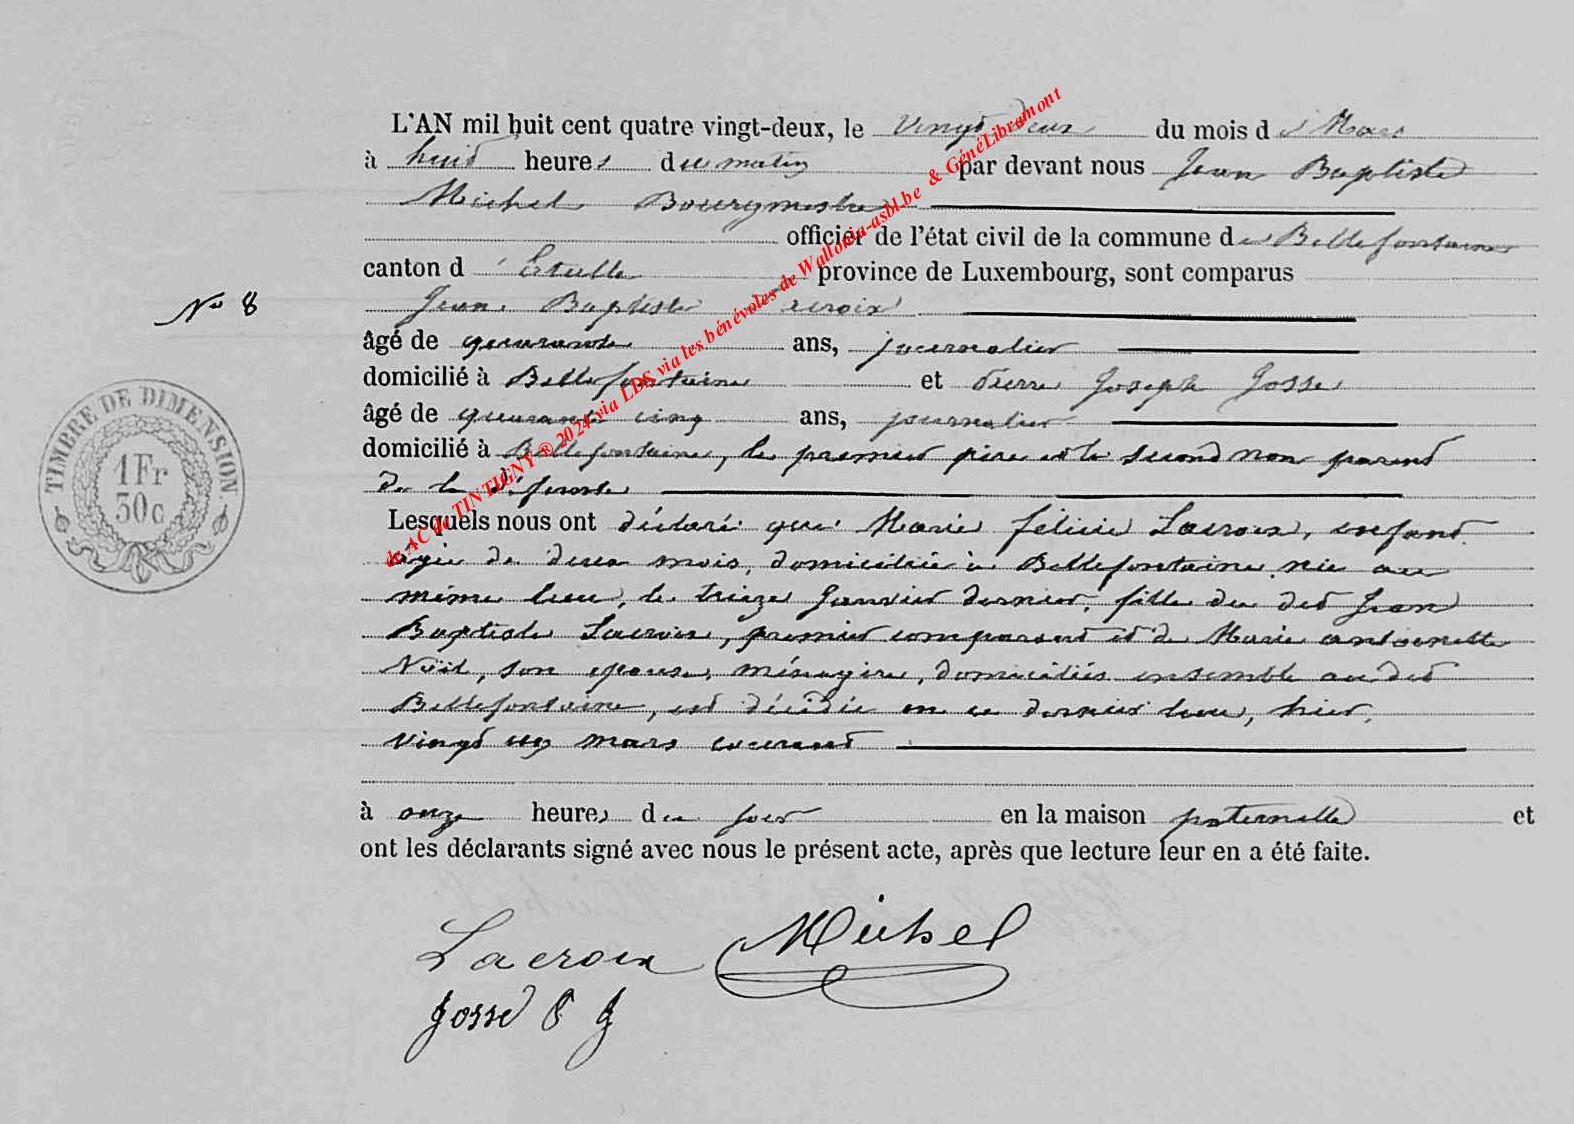 L'AN mil huit cent quatre vingt-deux, le vingt deux du mois de Mars
à huit heures du matin par devant nous Jean Baptiste
Michel Bourgmestre
officier de l'état civil de la commune de Bellefontaine
canton d'Etalle province de Luxembourg, sont comparus
Jean Baptiste Lacroix
âgé de quarante ans, journalier
domicilié à Bellefontaine et Pierre Joseph Josse
âgé de quarante cinq ans, journalier
domicilié à Bellefontaine, le premier père et le second non parent
de la défunte
Lesquels nous ont déclaré que Marie félicie Lacroix, enfant
agée de deux mois, domiciliée à Bellefontaine née au
même lieu, le treize Janvier dernier, fille du dit Jean
Baptiste Lacroix, premier comparant et de Marie antoinette
Noël, son épouse, ménagère, domiciliés ensemble au dit
Bellefontaine, est décédée en ce dernier lieu, hier,
vingt un mars courant
à onze heures du soir en la maison paternelle et
ont les déclarants signé avec nous le présent acte, après que lecture leur en a été faite.
No 8
TIMBRE DE DIMENSION.
1Fr
30c
Lacroix Michel
Josse P J
de AC de TINTIGNY ® 2024 via LDS via les bénévoles de Wallonia-asbl.be & GénéLibramont